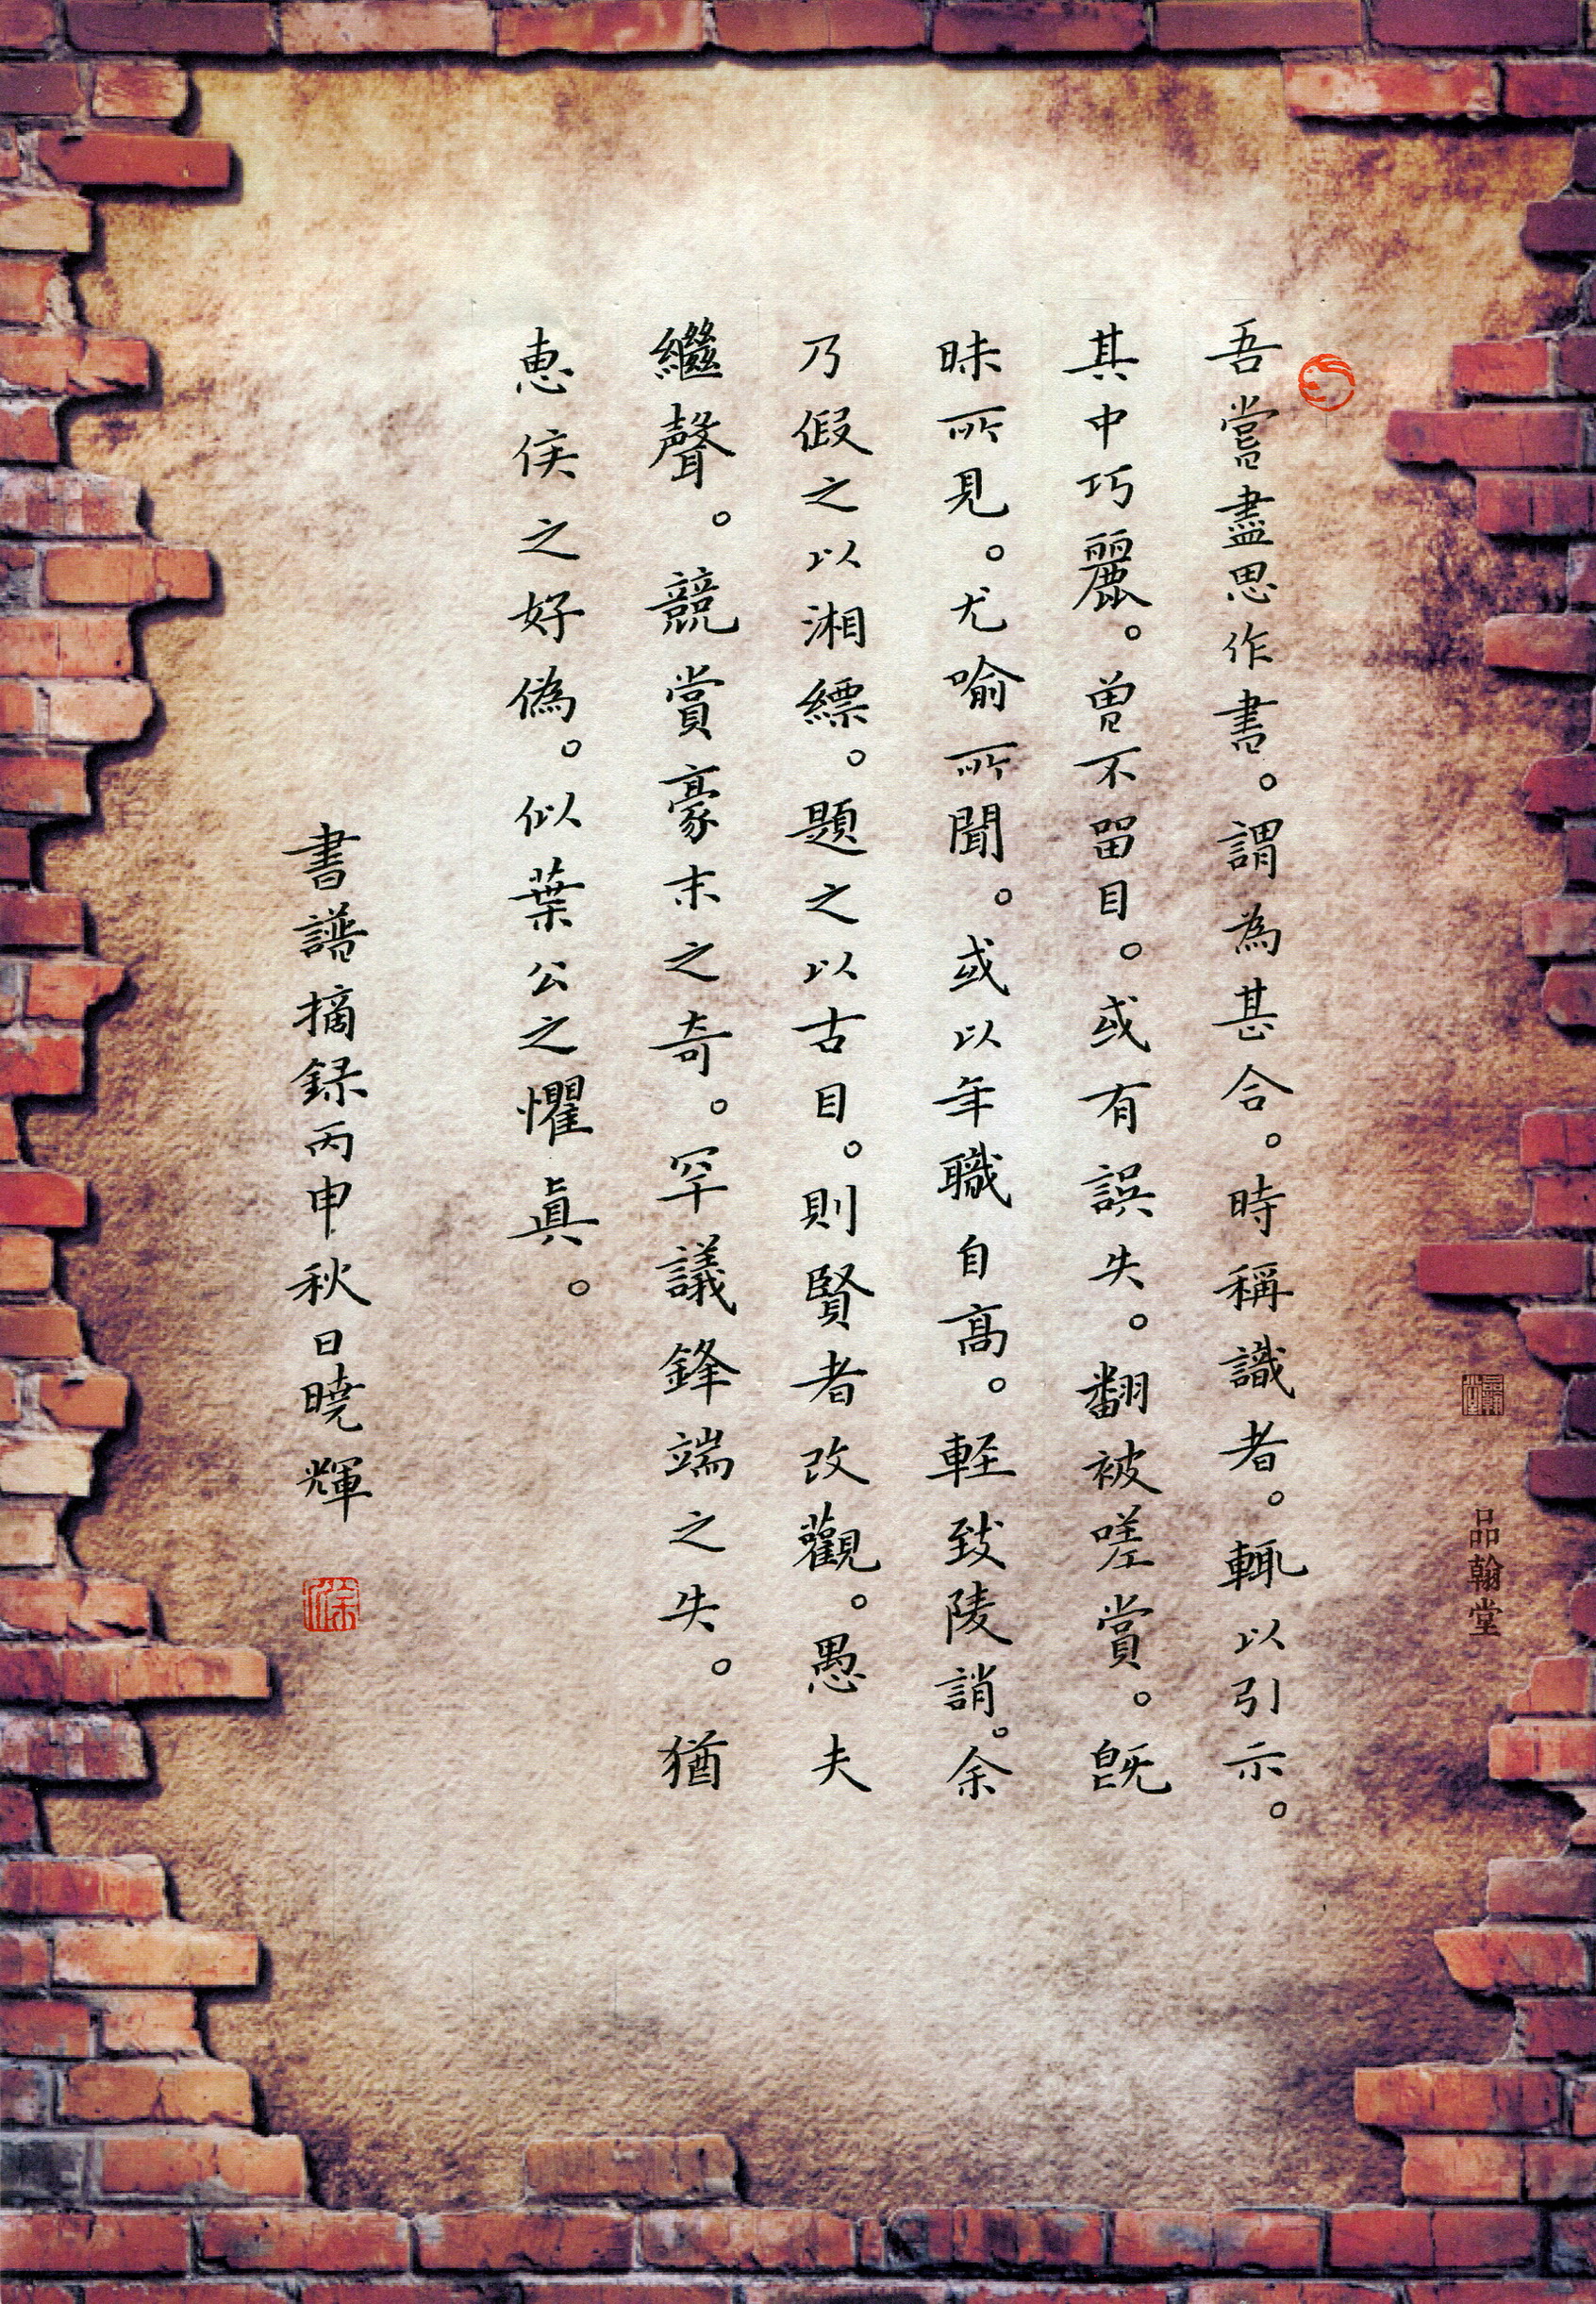 吾嘗盡思作書。謂為甚合。時稱識者。輒以引示。
其中巧麗。曾不留目。或有誤失。翻被嗟賞。既
昧所見。尤喻所聞。或以年職自高。輕致陵誚。余
乃假之以湘縹。題之以古目。則賢者改觀。愚夫
繼聲。競賞豪末之奇。罕議鋒端之失。猶
惠侯之好偽。似葉公之懼真。
書譜摘録丙申秋日曉輝
品翰堂